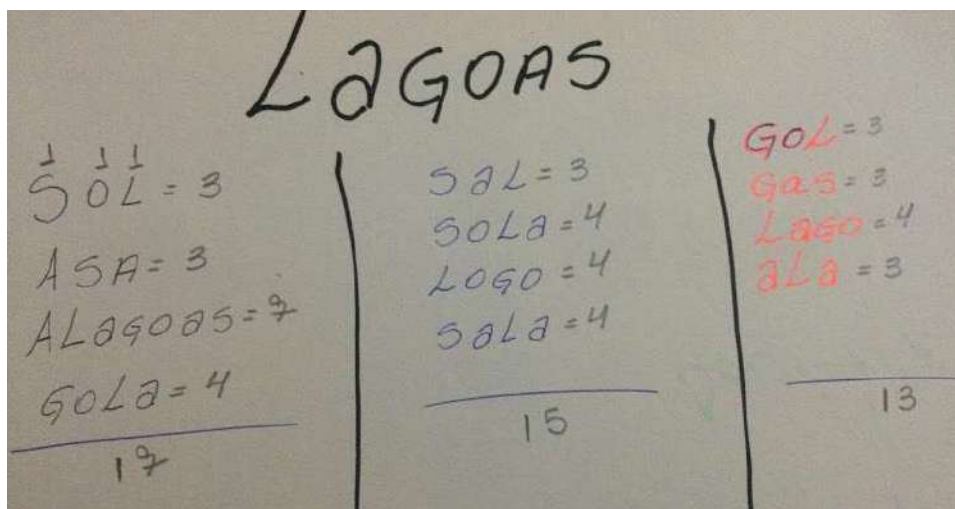 LaGOAS
1 1 1
SOL = 3
ASA = 3
ALagoas = 7
GOLa = 4
17
SaL = 3
SOLa = 4
LOGO = 4
SaLa = 4
15
GOL = 3
Gas = 3
Lago = 4
aLa = 3
13